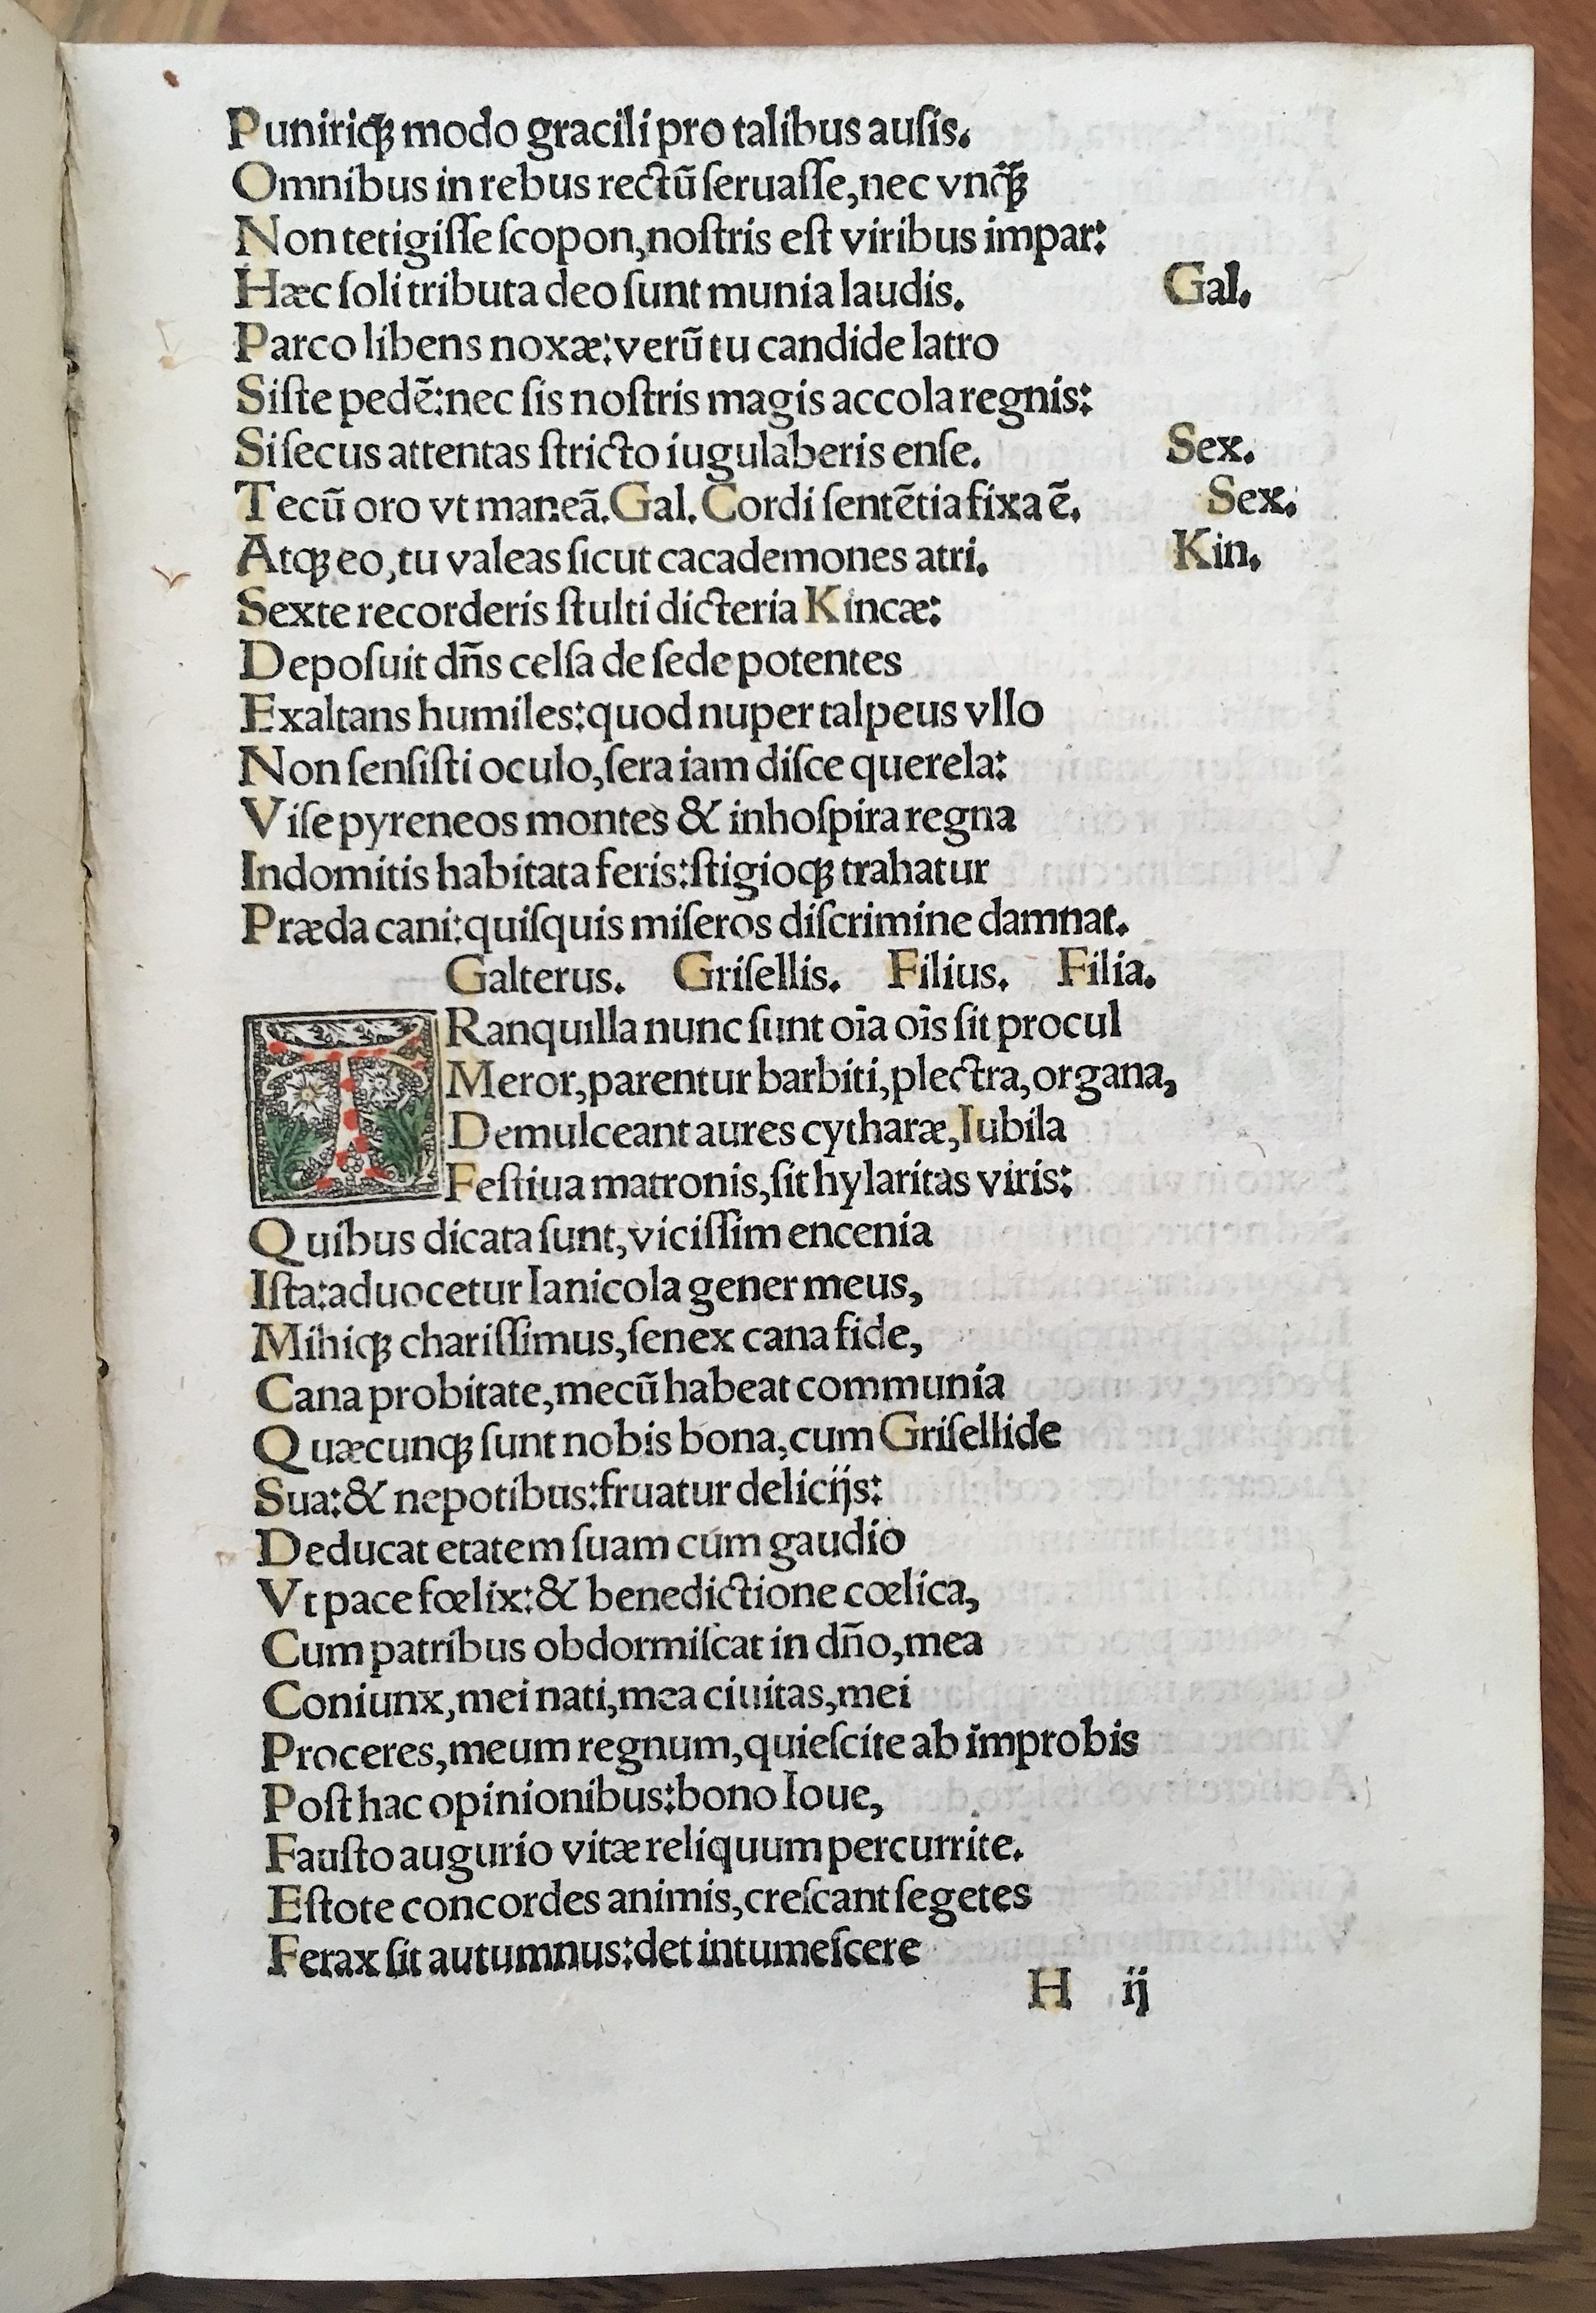 Puniriqꝫ modo gracili pro talibus auſis.
Omnibus in rebus rectū ſeruaſſe,nec vnq̄ꝫ
Non tetigiſſe ſcopon,noſtris eſt viribus impar:
Hæc ſoli tributa deo ſunt munia laudis. Gal.
Parco libens noxæ:verū tu candide latro
Siſte pedē:nec ſis noſtris magis accola regnis:
Si ſecus attentas ſtricto iugulaberis enſe. Sex.
Tecū oro vt maneā.Gal.Cordi ſentētia fixa ē. Sex.
Atqꝫ eo,tu valeas ſicut cacademones atri. Kin.
Sexte recorderis ſtulti dicteria Kincæ:
Depoſuit dn̄s celſa de ſede potentes
Exaltans humiles:quod nuper talpeus vllo
Non ſenſiſti oculo,ſera iam diſce querela:
Viſe pyreneos montes & inhoſpira regna
Indomitis habitata feris:ſtigioqꝫ trahatur
Præda cani:quiſquis miſeros diſcrimine damnat.
Galterus. Griſellis. Filius. Filia.
TRanquilla nunc ſunt oīa oīs ſit procul
Meror,parentur barbiti,plectra,organa,
Demulceant aures cytharæ,Iubila
Feſtiua matronis,ſit hylaritas viris:
Quibus dicata ſunt,viciſſim encenia
Iſta:aduocetur Ianicola gener meus,
Mihiqꝫ chariſſimus,ſenex cana fide,
Cana probitate,mecū habeat communia
Quæcunqꝫ ſunt nobis bona,cum Griſellide
Sua:& nepotibus:fruatur delicijs:
Deducat etatem ſuam cum gaudio
Vt pace fœlix:& benedictione cœlica,
Cum patribus obdormiſcat in dn̄o,mea
Coniunx,mei nati,mea ciuitas,mei
Proceres,meum regnum,quieſcite ab improbis
Poſt hac opinionibus:bono Ioue,
Fauſto augurio vitæ reliquum percurrite.
Eſtote concordes animis,creſcant ſegetes
Ferax ſit autumnus:det intumeſcere
H ij